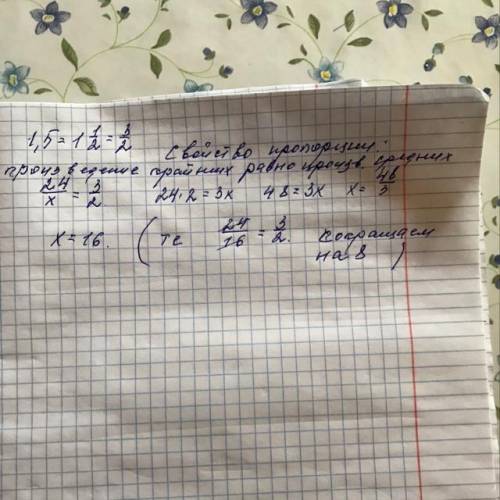 1,5 = 1 1/2 = 3/2 Свойство пропорции:
произведение крайних равно произв. средних
24/x = 3/2 24·2 = 3x 48 = 3x x = 48/3
x = 16. (те 24/16 = 3/2. сокращаем
на 8)